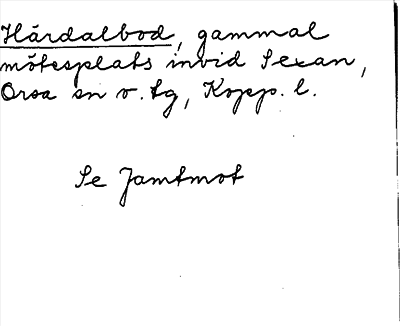 Härdalbod, gammal
mötesplats invid Sexan,
Orsa sn o. tg, Kopp. l.
Se Jamtmot